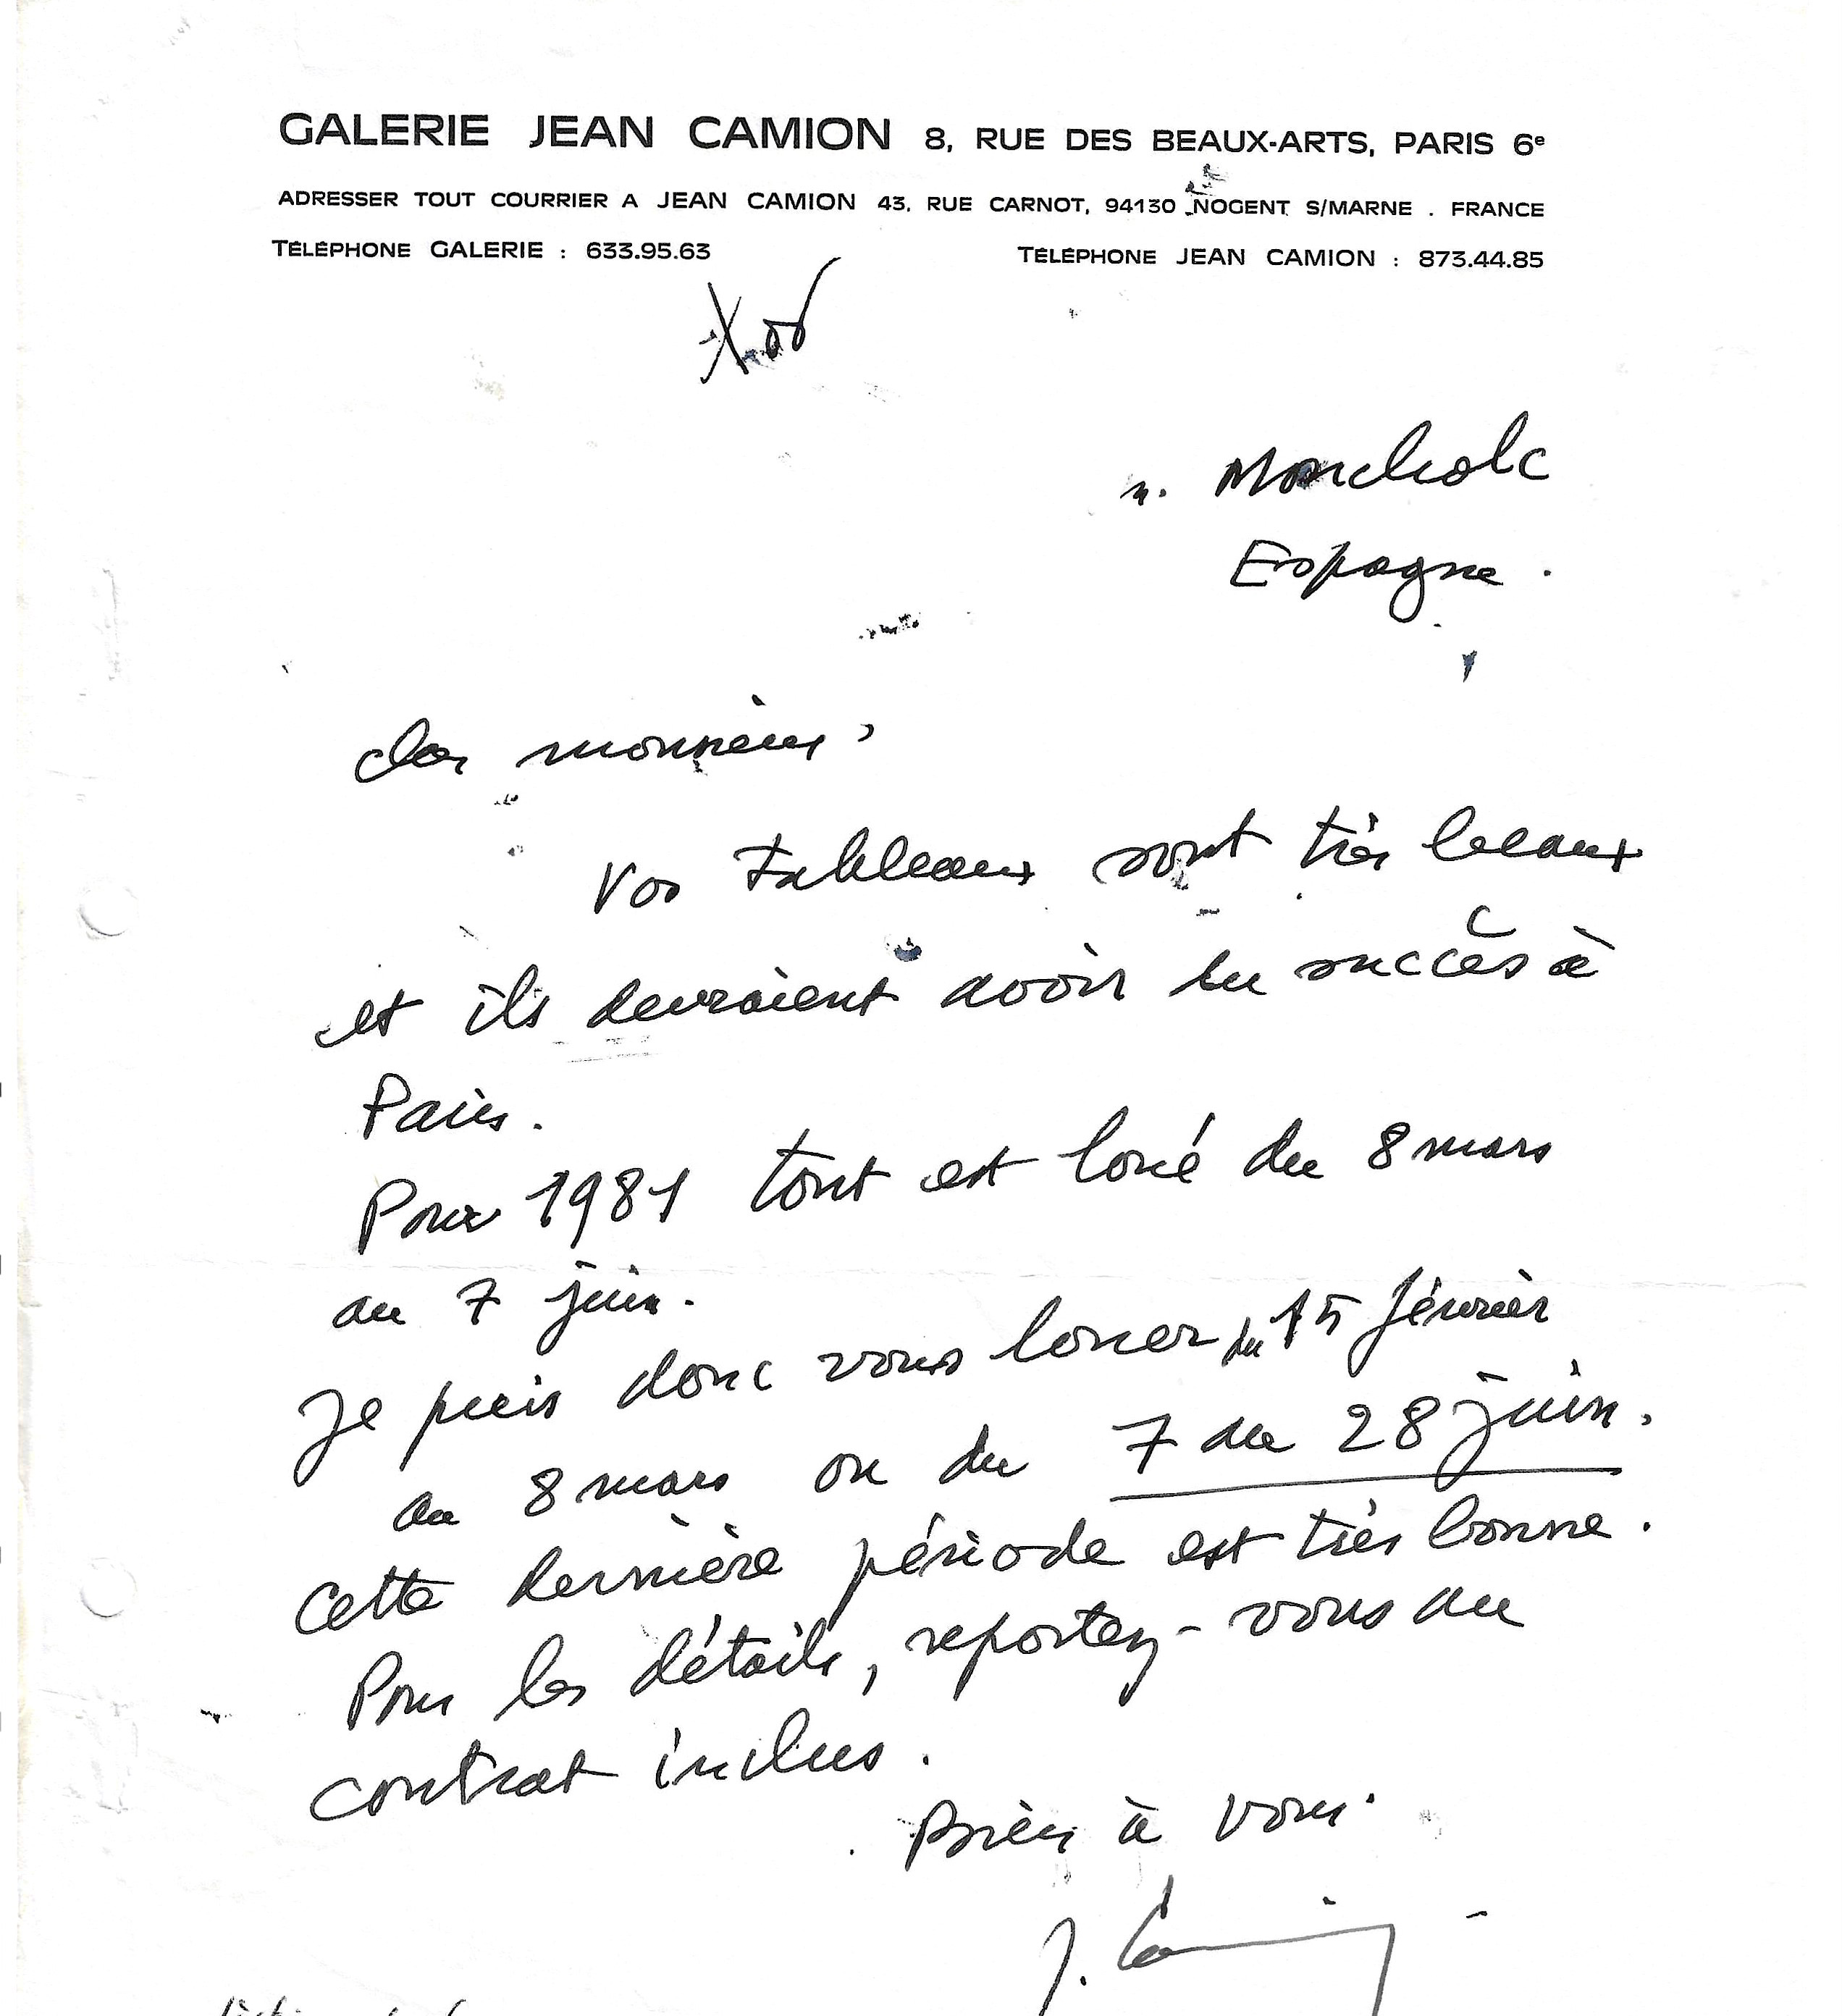 GALERIE JEAN CAMION 8, RUE DES BEAUX-ARTS, PARIS 6e
ADRESSER TOUT COURRIER A JEAN CAMION 43, RUE CARNOT, 94130 NOGENT S/MARNE . FRANCE
TÉLÉPHONE GALERIE : 633.95.63 TÉLÉPHONE JEAN CAMION : 873.44.85
M. Moncholc
Espagne .
cher monsieur,
Vos tableaux sont très beaux
et ils devraient avoir du succès à
Paris.
Pour 1981 tout est loué du 8 mars
au 7 juin.
Je puis donc vous louer du 15 février
au 8 mars ou du 7 au 28 juin.
Cette dernière période est très bonne.
Pour les détails, reportez-vous au
contrat inclus.
Bien à vous.
J. Camion